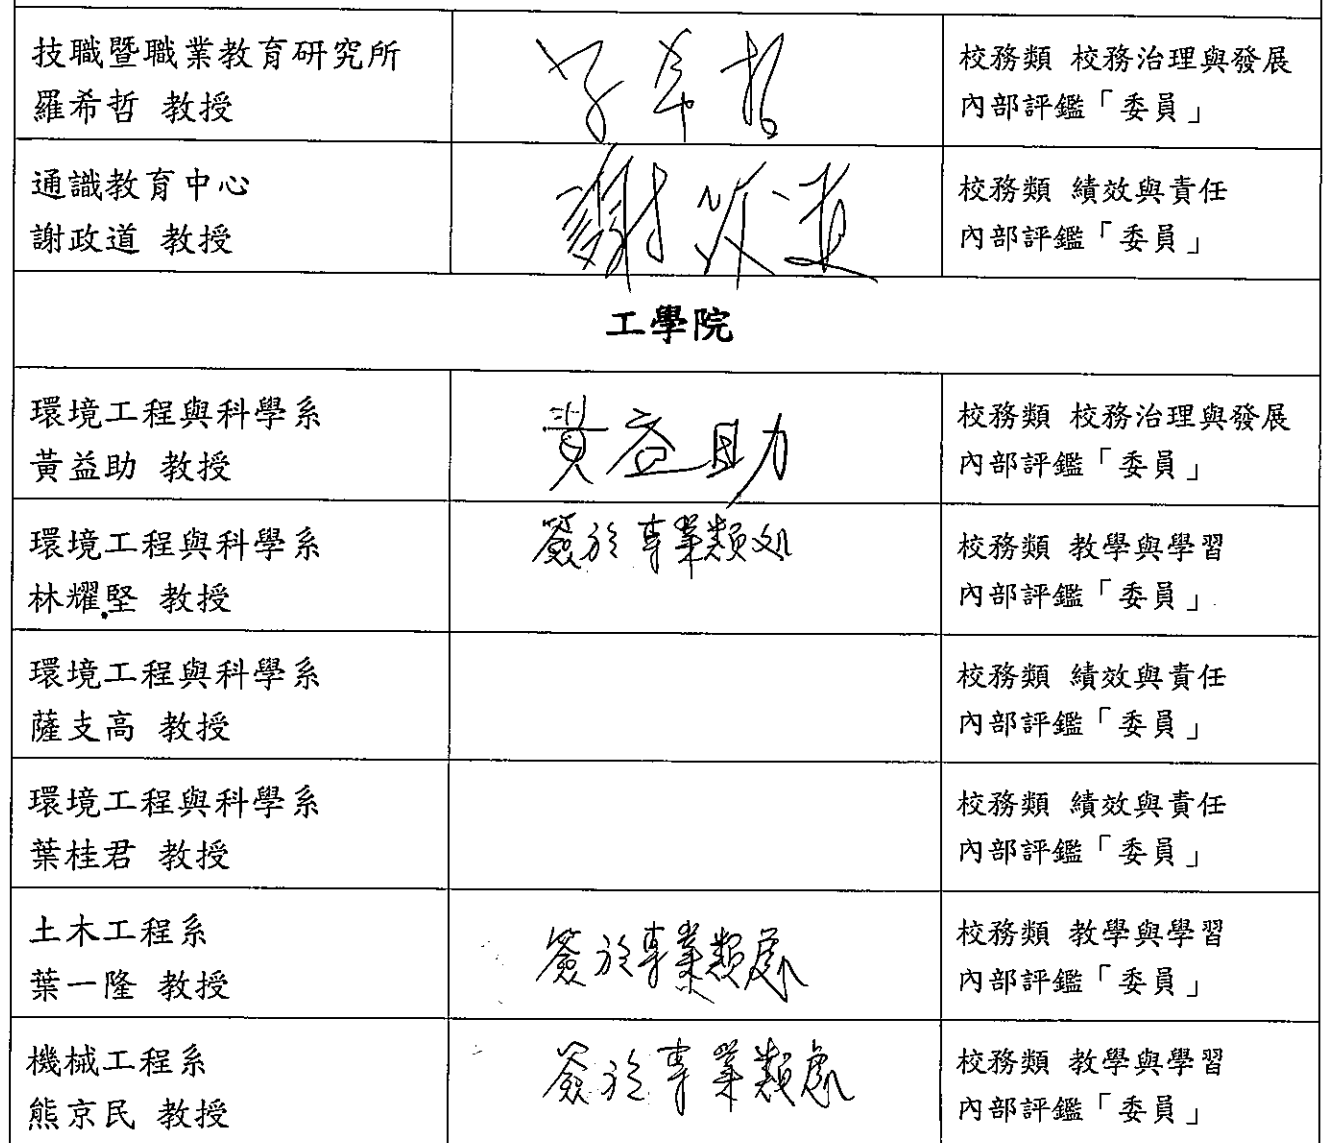 技職暨職業教育研究所
羅希哲 教授
校務類 校務治理與發展
內部評鑑「委員」
通識教育中心
謝政道 教授
謝政道
校務類 績效與責任
內部評鑑「委員」
工學院
環境工程與科學系
黃益助 教授
黃益助
校務類 校務治理與發展
內部評鑑「委員」
環境工程與科學系
林耀堅 教授
簽於專業類処
校務類 教學與學習
內部評鑑「委員」
環境工程與科學系
薩支高 教授
校務類 績效與責任
內部評鑑「委員」
環境工程與科學系
葉桂君 教授
校務類 績效與責任
內部評鑑「委員」
土木工程系
葉一隆 教授
簽於專業類處
校務類 教學與學習
內部評鑑「委員」
機械工程系
熊京民 教授
簽於專業類處
校務類 教學與學習
內部評鑑「委員」